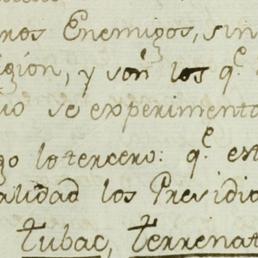 ros Enemigos, sin
igion, y són los q.e
io se experimento
go lo tercero: q.e est
alidad los Presidio
Tubac, Terrenat